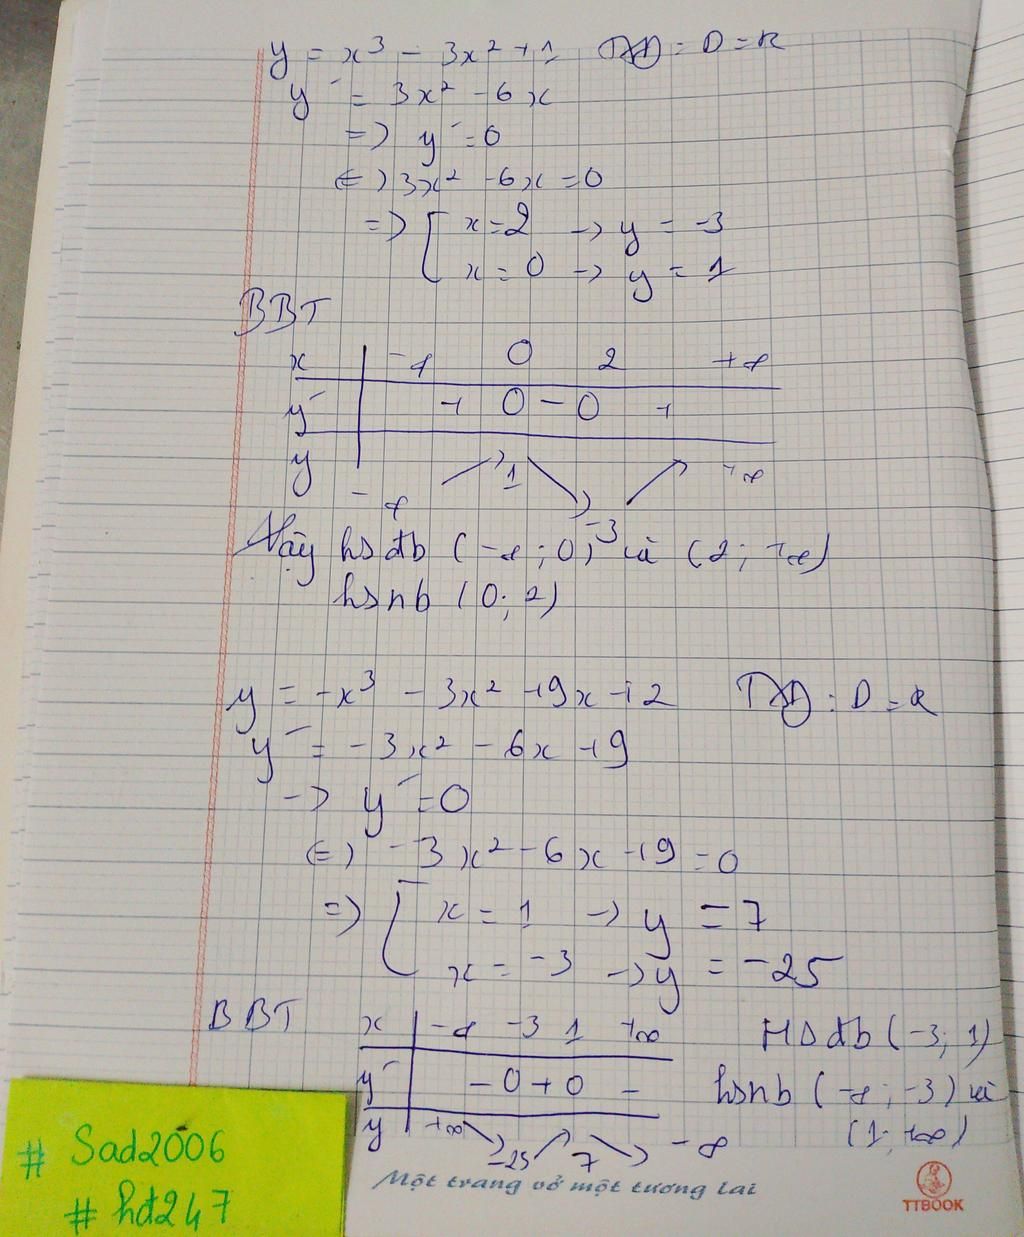 y = x³ - 3x² + 1 TXĐ: D = R
y' = 3x² - 6x
=> y' = 0
<=> 3x² - 6x = 0
=> [ x = 2 -> y = -3
x = 0 -> y = 1
BBT
x | -∞ 0 2 +∞
y' | + 0 - 0 +
y | -∞ ↗ 1 ↘ -3 ↗ +∞
Vậy hs đb (-∞; 0) và (2; +∞)
hsnb (0; 2)
y = -x³ - 3x² + 9x + 2 TXĐ: D = R
y' = -3x² - 6x + 9
-> y' = 0
<=> -3x² - 6x + 9 = 0
=> [ x = 1 -> y = 7
x = -3 -> y = -25
BBT
x | -∞ -3 1 +∞
y' | - 0 + 0 -
y | +∞ ↘ -25 ↗ 7 ↘ -∞
HS đb (-3; 1)
hsnb (-∞; -3) và
(1; +∞)
# Sad2006
# hđ247
Một trang vở một tương lai
TTBOOK